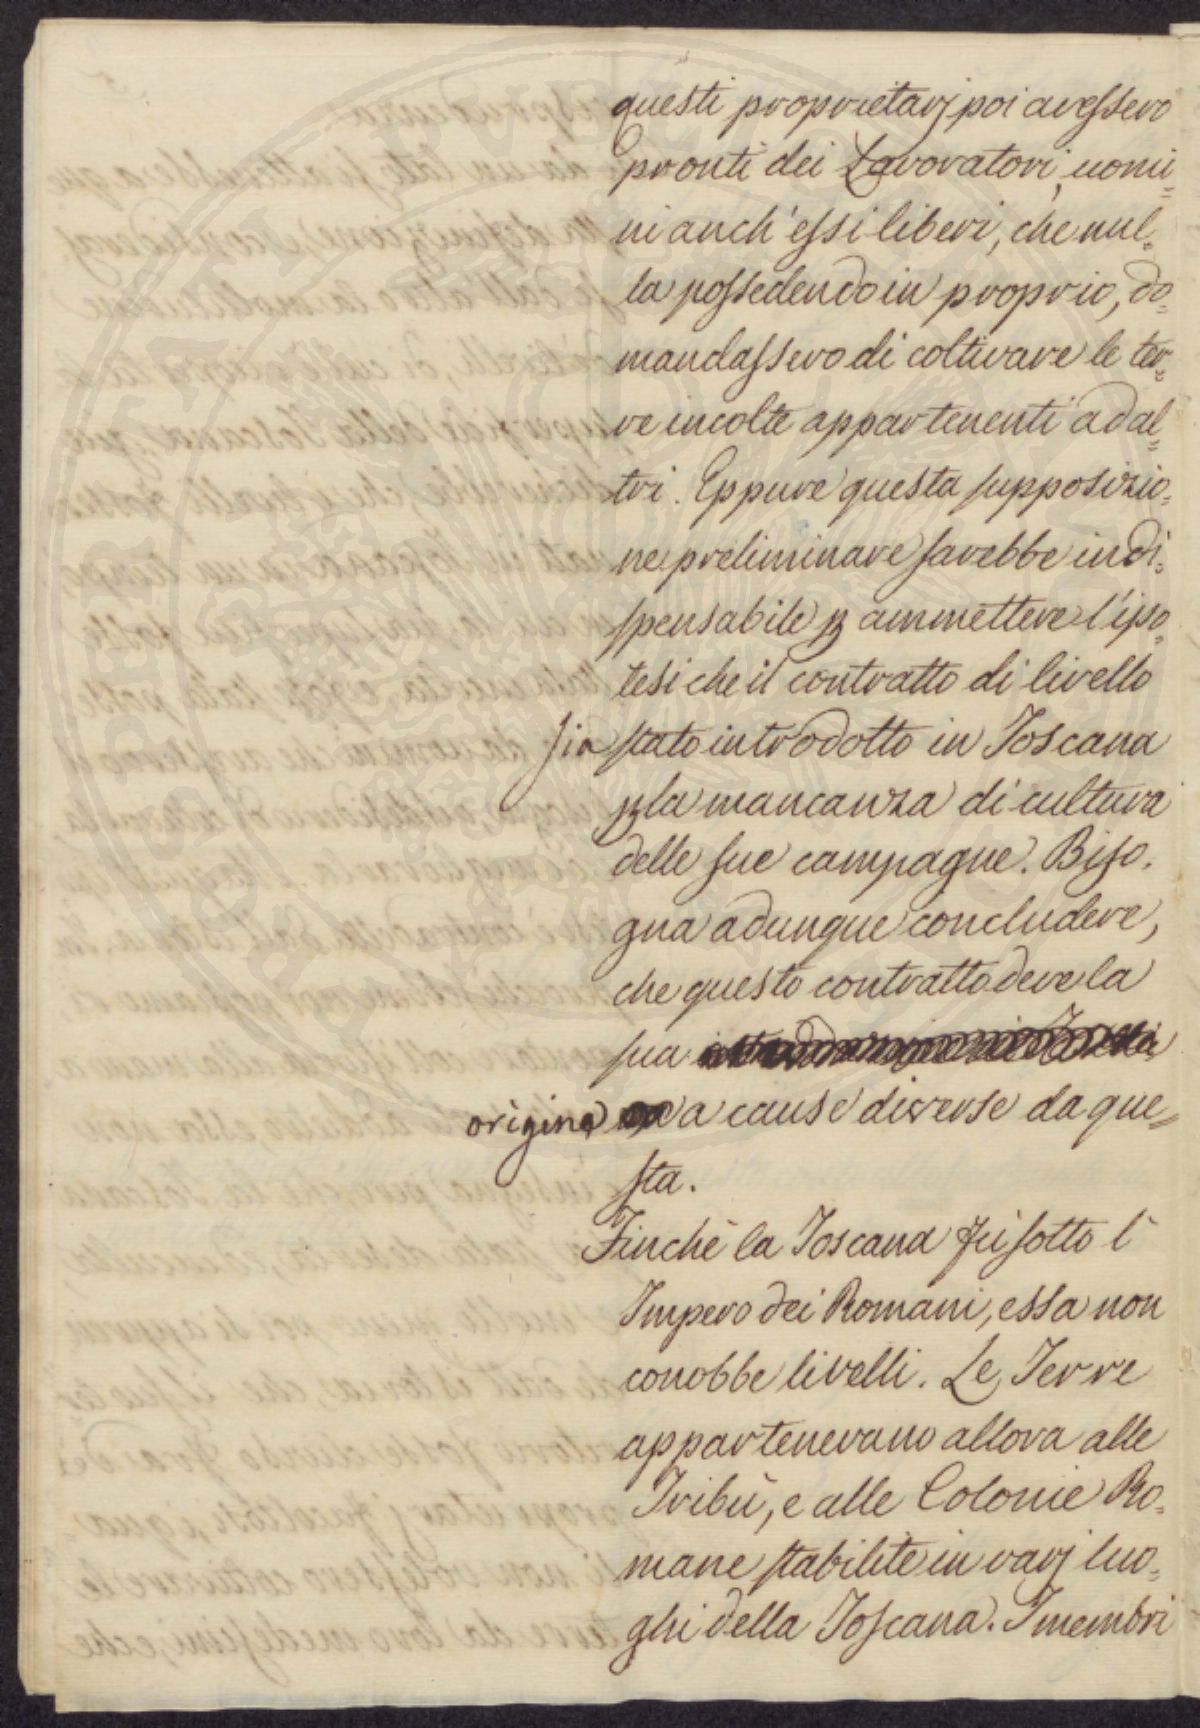 questi proprietarj poi avessero
pronti dei Lavoratori, uomi=
ni anch'essi liberi, che nul=
la possedendo in proprio, do=
mandassero di coltivare le ter=
re incolte appartenenti ad al=
tri. Eppure questa supposizio=
ne preliminare sarebbe indi=
spensabile p ammettere l'ipo=
tesi che il contratto di livello
sia stato introdotto in Toscana
p la mancanza di cultura
delle sue campagne. Biso=
gna adunque concludere,
che questo contratto deve la
sua
origine a cause diverse da que=
sta.
Finchè la Toscana fù sotto l'
Impero dei Romani, essa non
conobbe livelli. Le Terre
appartenevano allora alle
Tribù, e alle Colonie Ro=
mane stabilite in varj luo=
ghi della Toscana. I membri